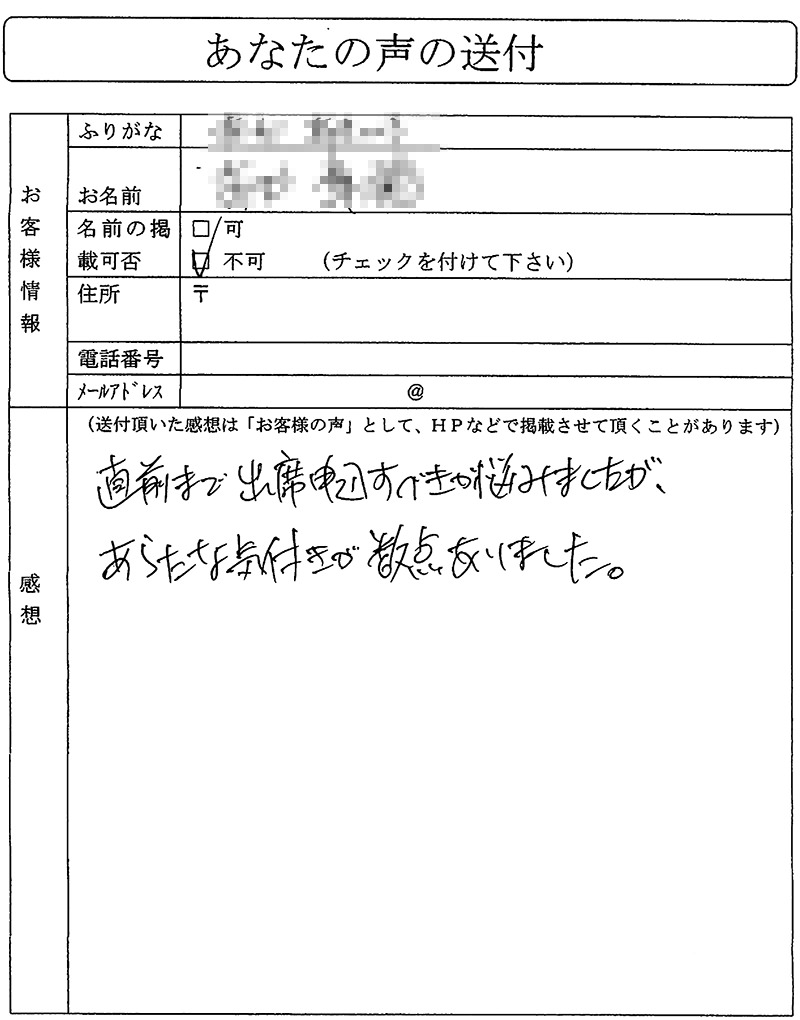 あなたの声の送付
お客様情報
ふりがな
お名前
名前の掲載可否
□ 可
□ 不可 (チェックを付けて下さい)
住所 〒
電話番号
メールアドレス @
感想
(送付頂いた感想は「お客様の声」として、HPなどで掲載させて頂くことがあります)
直前まで出席申込すべきか悩みましたが、
あらたな気付きが数点ありました。